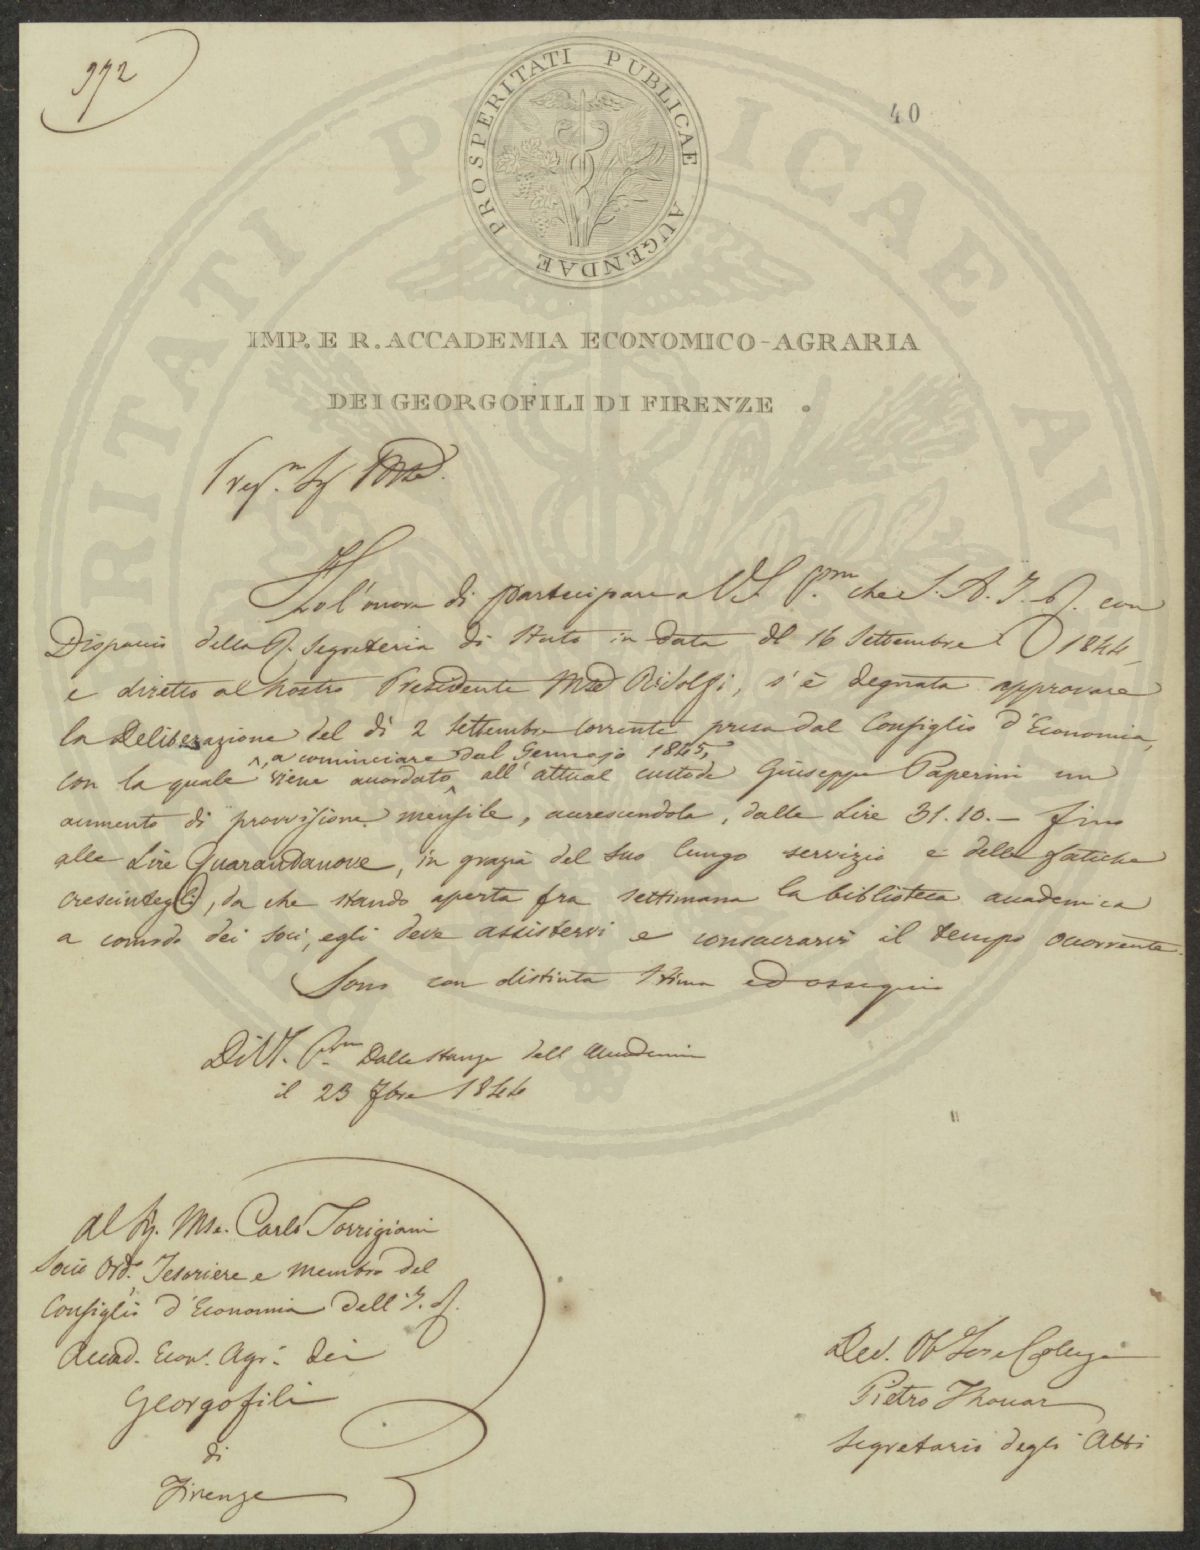 972
40
PROSPERITATI PUBLICAE AUGENDAE
IMP. E R. ACCADEMIA ECONOMICO-AGRARIA
DEI GEORGOFILI DI FIRENZE.
Preg.mo Sig. Mse
Ho l'onore di partecipare a V.S. P.ma che S. A. I. R. con
Dispaccio della R. Segreteria di Stato in data del 16 Settembre 1844
e diretto al nostro Presidente Mse Ridolfi, s'è degnata approvare
la Deliberazione del dì 2 Settembre corrente presa dal Consiglio d'Economia,
con la quale, a cominciare dal Gennajo 1845, viene accordato all'attual custode Giuseppe Paperini un
aumento di provvisione mensile, accrescendola, dalle Lire 31.10.— fino
alle Lire Quarandanove, in grazia del suo lungo servizio e delle fatiche
cresciutegli, da che stando aperta fra settimana la biblioteca accademica
a comodo dei soci, egli deve assistervi e consacrarvi il tempo occorrente.
Sono con distinta stima ed ossequio
Di V.S. P.ma Dalle stanze dell'Accademia
il 23 7bre 1844
Al Sig. Mse. Carlo Torrigiani
Socio Ord. Tesoriere e membro del
Consiglio d'Economia dell'I. R.
Accad. Econ. Agr. dei
Georgofili
di
Firenze
Dev. Ob. Ser e Collega
Pietro Thouar
Segretario degli Atti